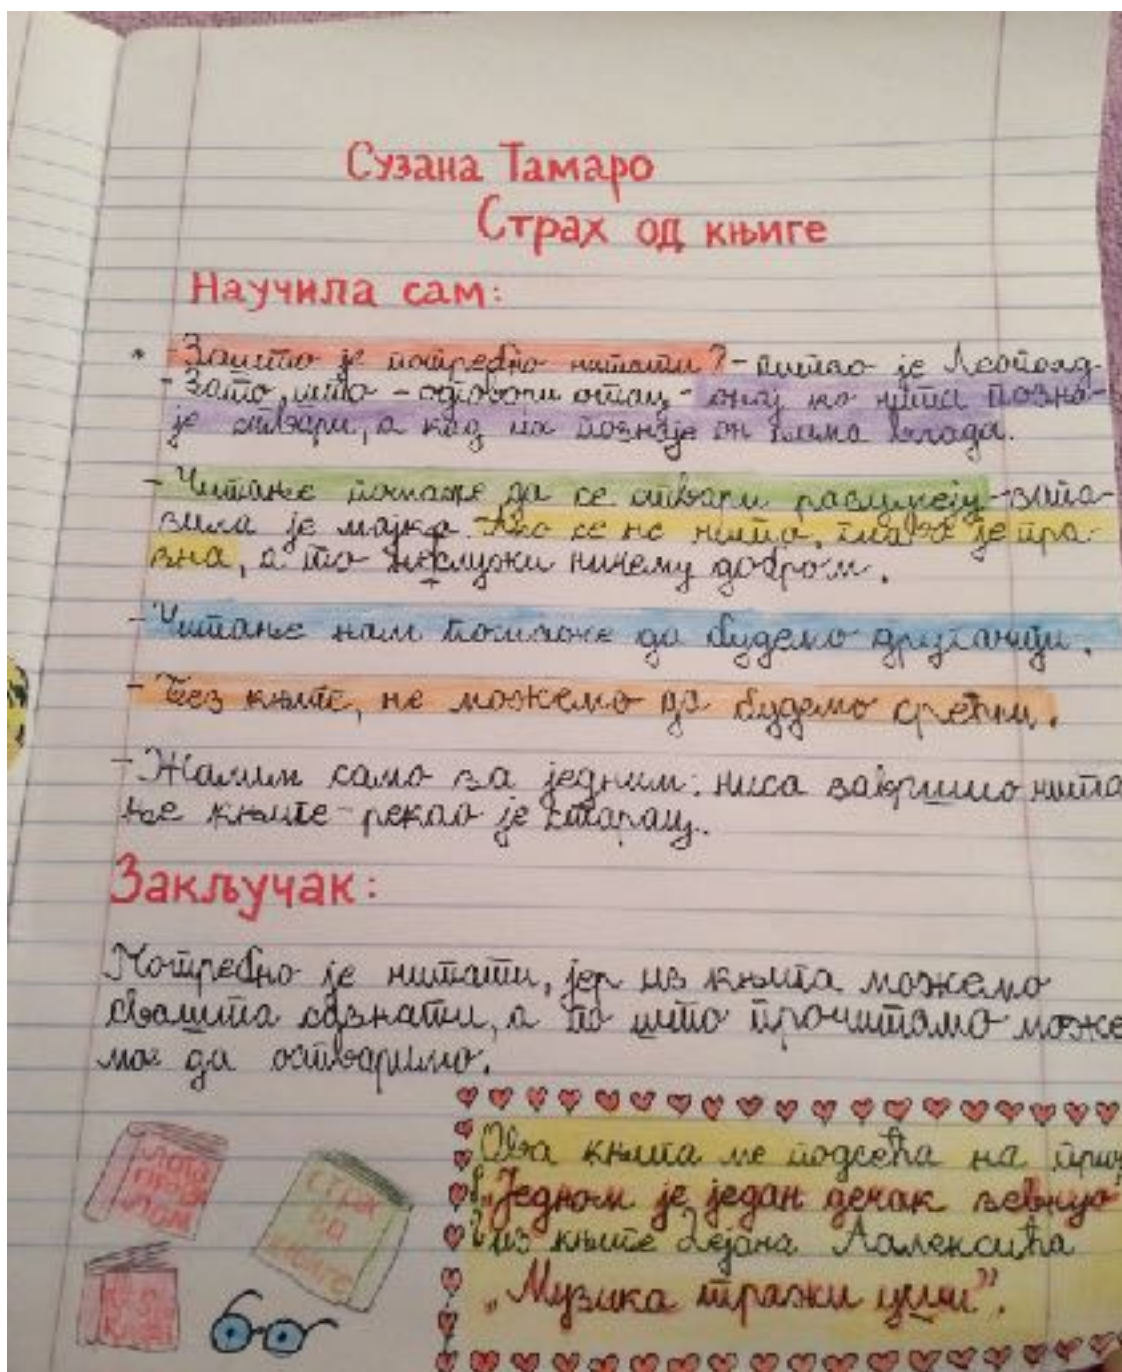 Сузана Тамаро
Страх од књиге
Научила сам:
- Зашто је потребно читати? - питао је Леополд
- Зато што - одговори отац - онај ко чита позна-
је ствари, а кад их познаје он њима влада.
- Читање помаже да се ствари разумеју -
зила је мајка. Ако се не чита, глава је пра-
зна, а то не служи ничему добром.
- Читање нам помаже да будемо другачији.
- Без књиге, не можемо да будемо срећни.
- Жалим само за једним: ниса завршио чита
ње књиге - рекао је старац.
Закључак:
Потребно је читати, јер из књига можемо
свашта сазнати, а то што прочитамо може
мо да остваримо.
Ова књига ме подсећа на
„Једном је један дечак зевнуо
из књиге Дејана Аалексића
„Музика тражи уши”.
СТРАХ
ОД
КЊИГЕ